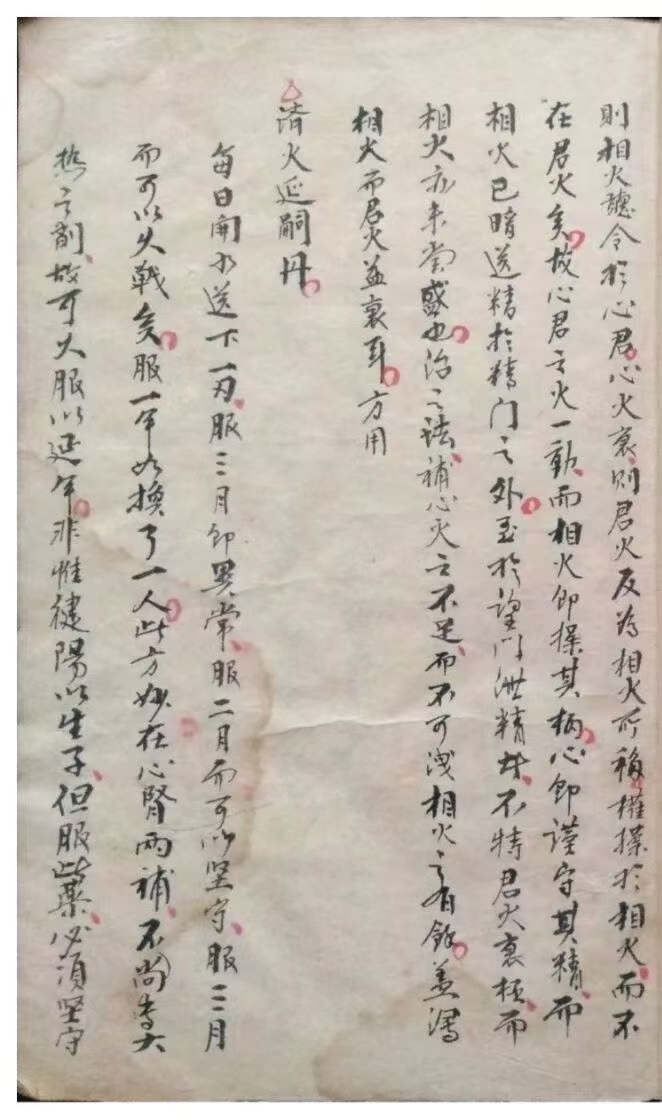 則相火聽令於心君。心火衰、則君火反為相火所移、權操於相火、而不
在君火矣。故心君之火一動、而相火即操其柄、心即謹守其精、而
相火已暗送精於精门之外。至於望门泄精者、不特君火衰極、而
相火亦未嘗盛也。治之法、補心火之不足、而不可洩相火之有餘。盖瀉
相火而君火益衰耳。方用
濟火延嗣丹。
每日開水送下一丸、服一月即異常、服二月而可以坚守、服三月
而可以久戰矣。服一年如換了一人。此方妙在心腎兩補、不尚専大
熱之劑、故可久服以延年。非惟健陽以生子、但服此藥、必須坚守